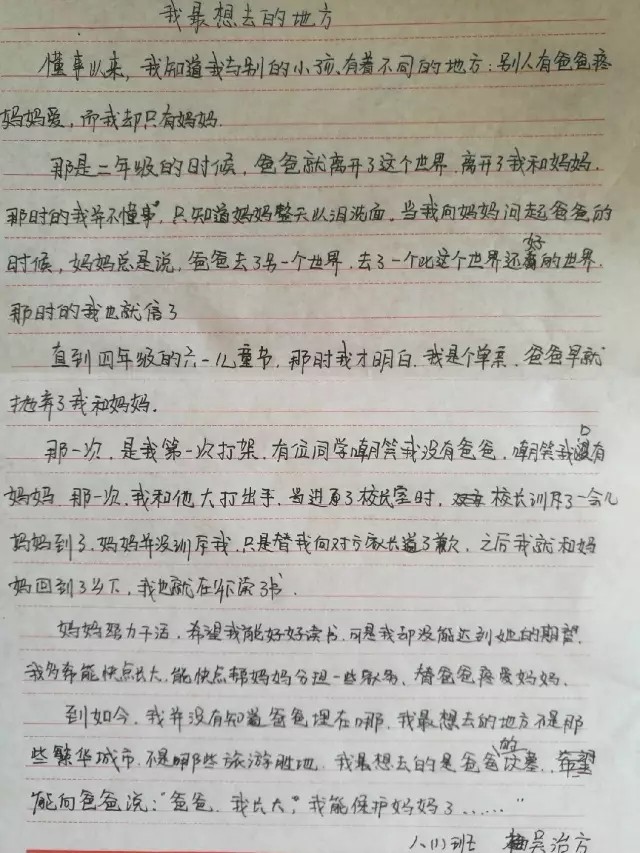 我最想去的地方
懂事以来，我知道我与别的小孩、有着不同的地方：别人有爸爸疼
妈妈爱，而我却只有妈妈.
那是二年级的时候，爸爸就离开了这个世界.离开了我和妈妈.
那时的我并不懂事，只知道妈妈整天以泪洗面，当我向妈妈问起爸爸的
时候，妈妈总是说，爸爸去了另一个世界，去了一个比这个世界还好的世界.
那时的我也就信了
直到四年级的六一儿童节，那时我才明白.我是个单亲.爸爸早就
抛弃了我和妈妈.
那一次，是我第一次打架，有位同学嘲笑我没有爸爸，嘲笑我没有
妈妈 那一次，我和他大打出手，当进了校长室时，校长训斥了一会儿
妈妈到了，妈妈并没训斥我，只是替我向对方家长道了歉，之后我就和妈
妈回到了乡下，我也就在乡下读了书.
妈妈努力干活，希望我能好好读书.可是我却没能达到她的期望.
我多希能快点长大，能快点帮妈妈分担一些家务、替爸爸疼爱妈妈.
到如今，我并没有知道爸爸埋在哪，我最想去的地方不是那
些繁华城市.不是哪些旅游胜地.我最想去的是爸爸的坟墓.希望
能向爸爸说："爸爸，我长大了，我能保护妈妈了……"
八(1)班 吴治方